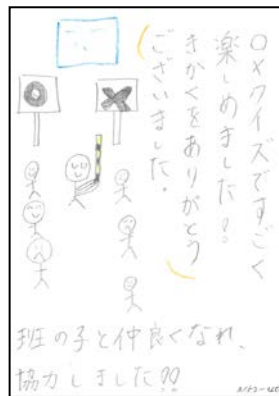 ○×クイズですごく
楽しめました！
きかくをありがとう
ございました。
班の子と仲良くなれ、
協力しました!!